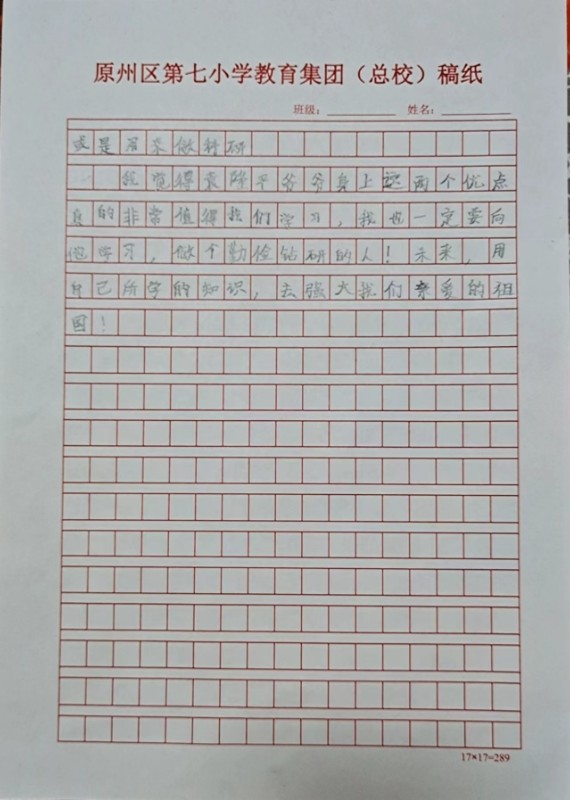 原州区第七小学教育集团（总校）稿纸
班级： 姓名：
或是用来做科研
我觉得袁隆平爷爷身上这两个优点
真的非常值得我们学习，我也一定要向
他学习，做个勤俭钻研的人！未来，用
自己所学的知识，去强大我们亲爱的祖
国！
17×17=289